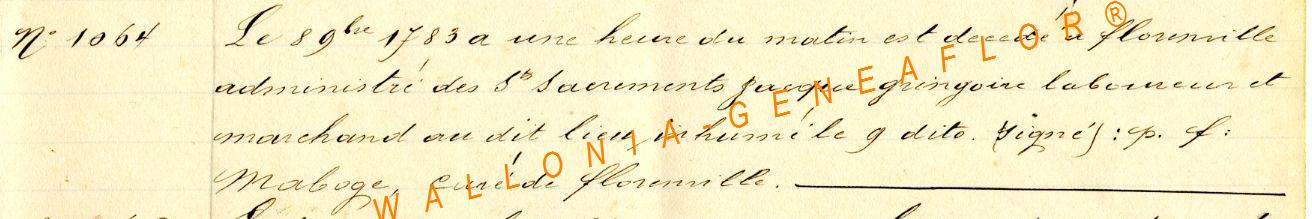 N° 1064 Le 8 9bre 1783 a une heure du matin est decedé à florenville
administré des Sts Sacrements jacque gringoire laboureur et
marchand au dit lieu inhumé le 9 dito. Signé) : p. f :
Maboge, curé de florenville.
WALLONIA-GENEAFLOR®